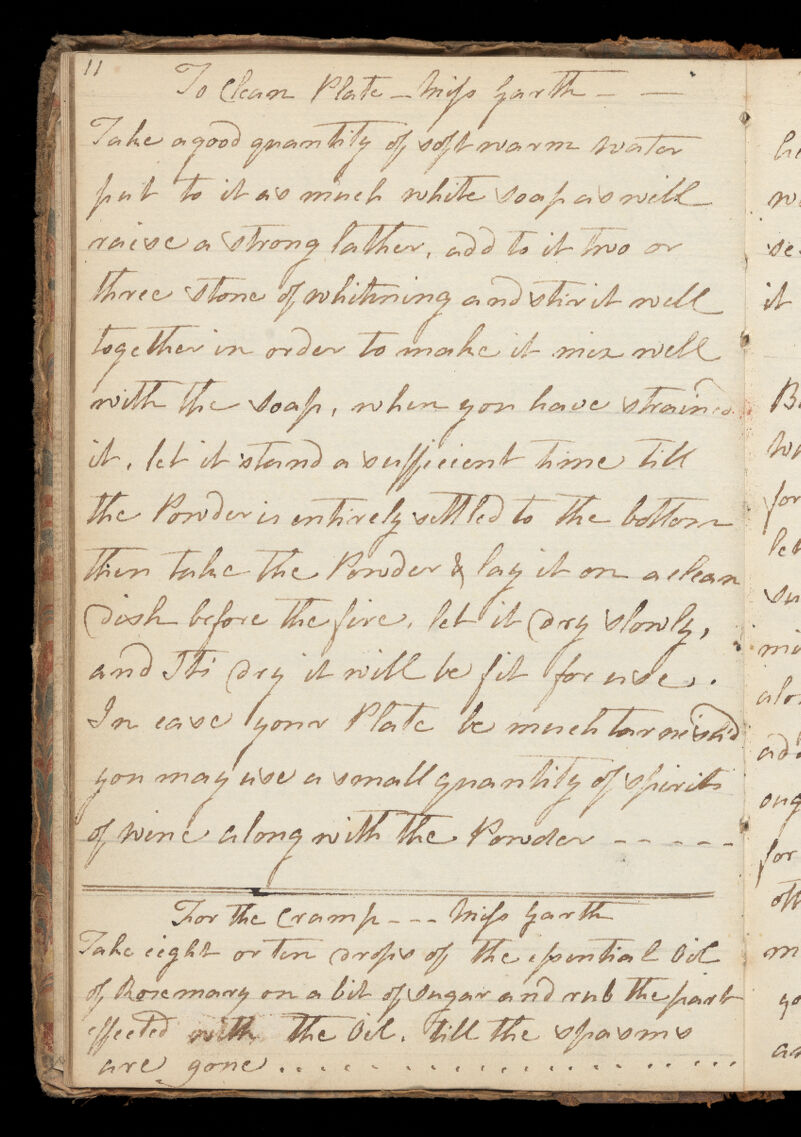 11
To Clean Plate - Miss Garth - -
Take a good quantity of soft warm water
put to it as much white soap as will
raise a strong lather, add to it two or
three stone of whitining and stir it well
together in order to make it mix well
with the soap, when you have strained
it, let it stand a sufficient time till
the Powder is entirely settled to the bottom
then take the Powder & lay it on a clean
Dish before the fire, let it dry slowly,
and dry it will be fit for use.
In case your Plate be much tarnish'd
you may use a small quantity of spirits
of wine along with the Powder - - - - -
For the Cramp - - - Miss Garth
Take eight or ten drops of the essential Oil
of Rosemary on a bit of sugar and rub the part
effected with the Oil, till the spasms
are gone . . . . . . . . . . . . . . . . . .
li
se
it
for
let
su
mi
alo
ad
oug
for
m
yo